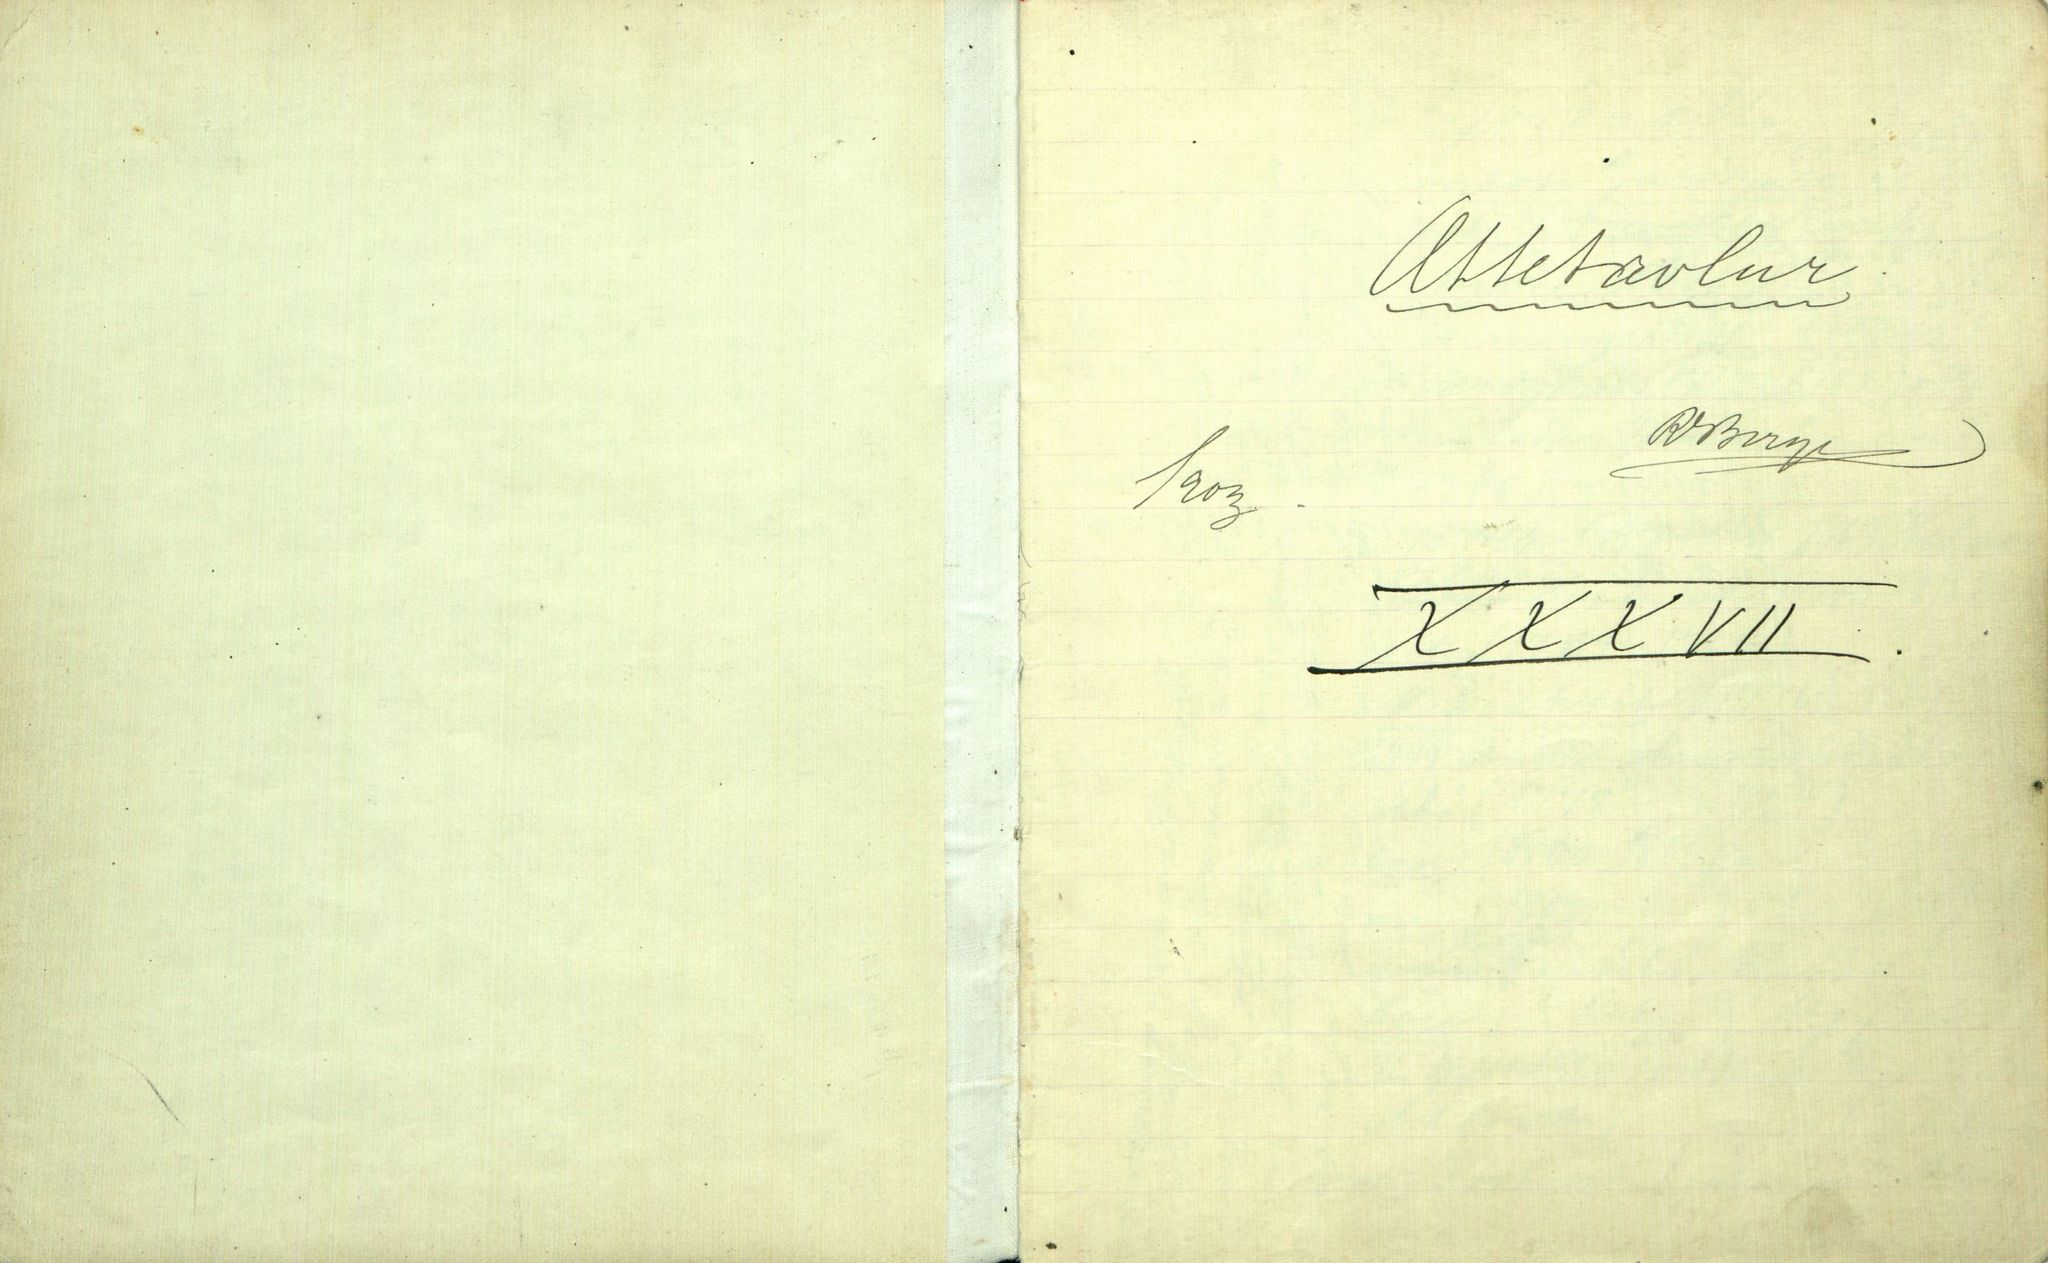 Ættetavlur
RBerge
1903.
XXXVII.